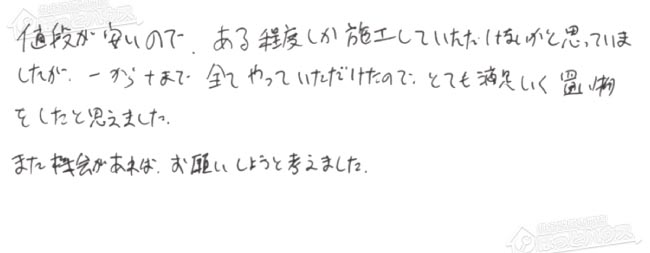 値段が安いので、ある程度しか施工していただけないかと思っていま
したが、一から十まで全てやっていただけたので、とても満足いく買い物
をしたと思えました。
また機会があれば、お願いしようと考えました。